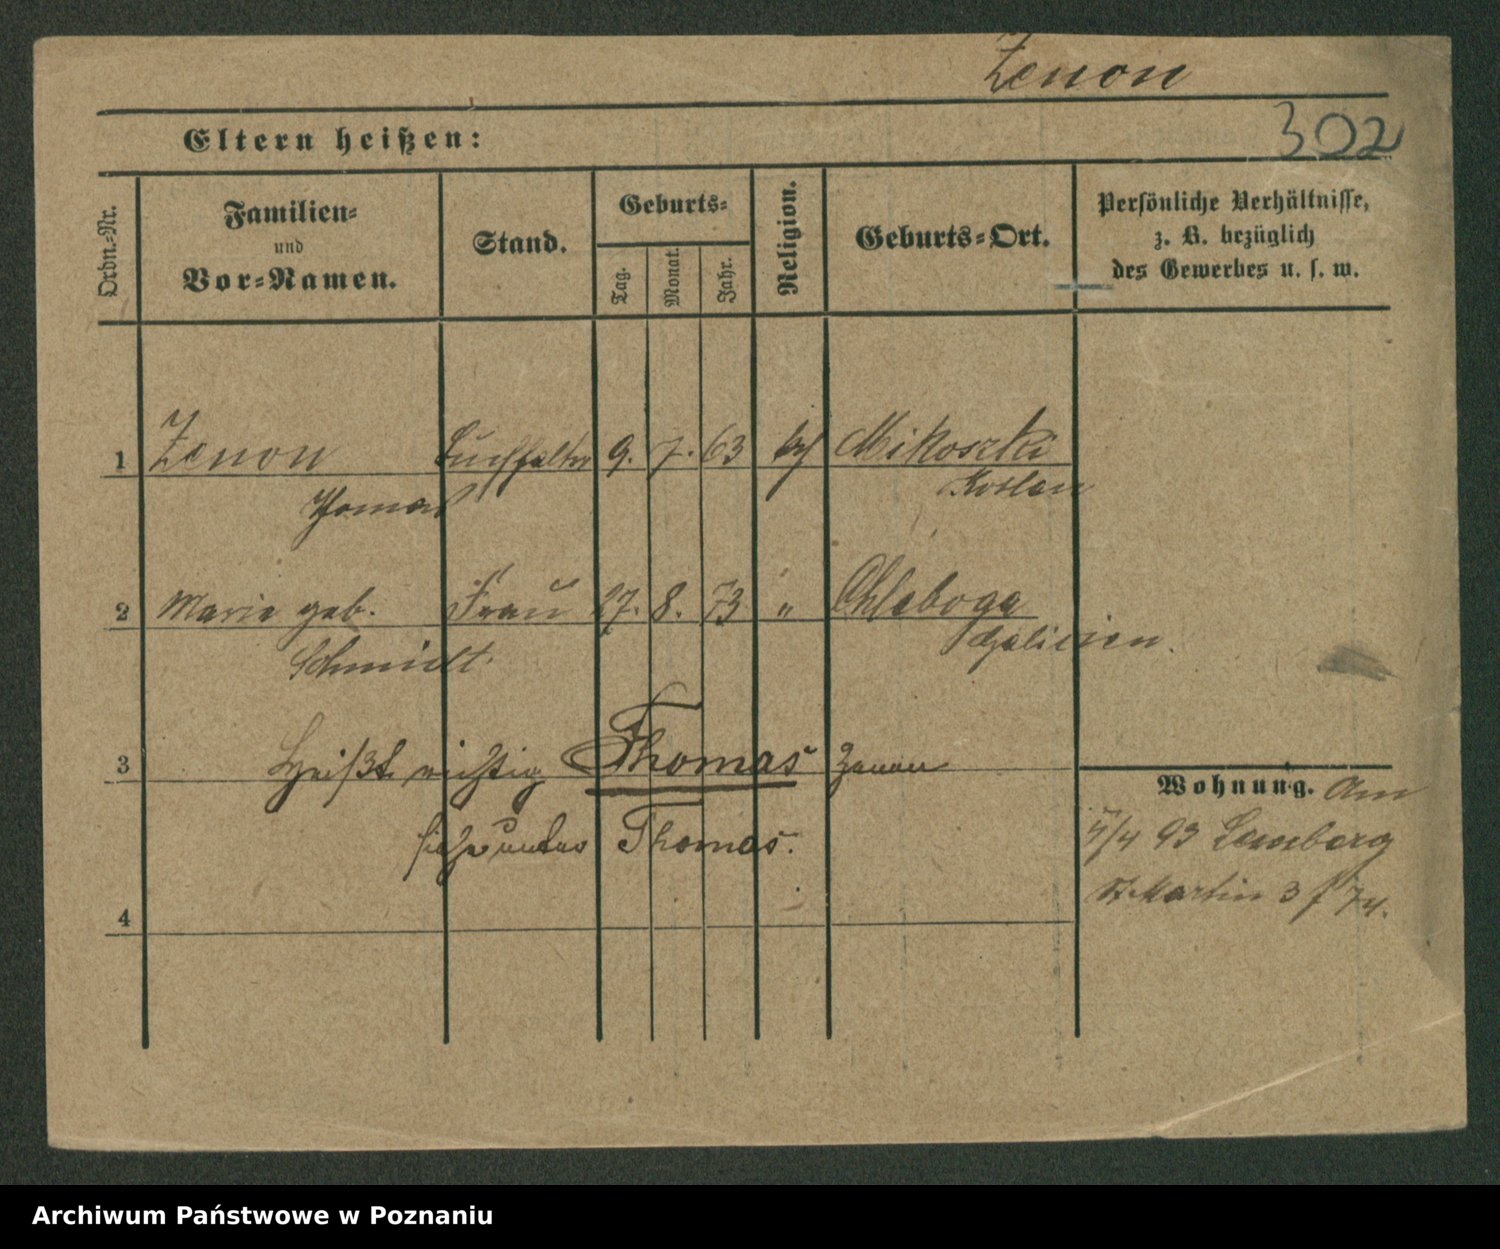 Zenon
302
Eltern heißen:
Ordn.-Nr.
Familien- und Vor-Namen.
Stand.
Geburts-
Tag.
Monat.
Jahr.
Religion.
Geburts-Ort.
Persönliche Verhältnisse,
z. B. bezüglich
des Gewerbes u. s. w.
1 Zenon Buchhalter 9. 7. 63 kath Mikoszki
Thomas Kosten
2 Marie geb. Frau 27. 8. 73 " Chleboga
Schmidt. Galizien.
3 Heißt richtig Thomas Zenon
siehe unter Thomas.
4
Wohnung. Am
5/4 93 Lemberg
St. Martin 3 f 74.
Archiwum Państwowe w Poznaniu